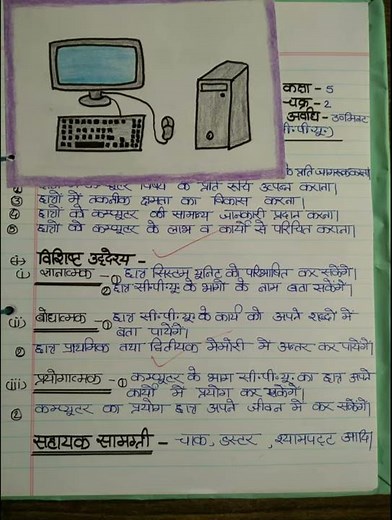 कक्षा - 5
चक्र - 2
अवधि - ३०मिनट
सी॰पी॰यू॰)
के प्रति जागरूक करना।
② विषय के प्रति रुचि उत्पन्न कराना।
③ छात्रों में तकनीक क्षमता का विकास करना।
④ छात्रों को कम्प्यूटर की सामान्य जानकारी प्रदान करना।
⑤ छात्रों को कम्प्यूटर के लाभ व कार्यो से परिचित कराना।
विशिष्ट उद्देश्य -
(i) ज्ञानात्मक - ① छात्र सिस्टम यूनिट को परिभाषित कर सकेंगे।
② छात्र सी॰पी॰यू॰ के भागों के नाम बता सकेंगे।
(ii) बोधात्मक - ① छात्र सी॰पी॰यू॰ के कार्य को अपने शब्दों में
बता पायेंगे।
② छात्र प्राथमिक तथा द्वितीयक मैमोरी में अन्तर कर पायेंगे।
(iii) प्रयोगात्मक - ① कम्प्यूटर के भाग सी॰पी॰यू॰ का छात्र अपने
कार्यो में प्रयोग कर सकेंगे।
② कम्प्यूटर का प्रयोग छात्र अपने जीवन में कर सकेंगे।
सहायक सामग्री - चाक, डस्टर, श्यामपट्ट आदि।